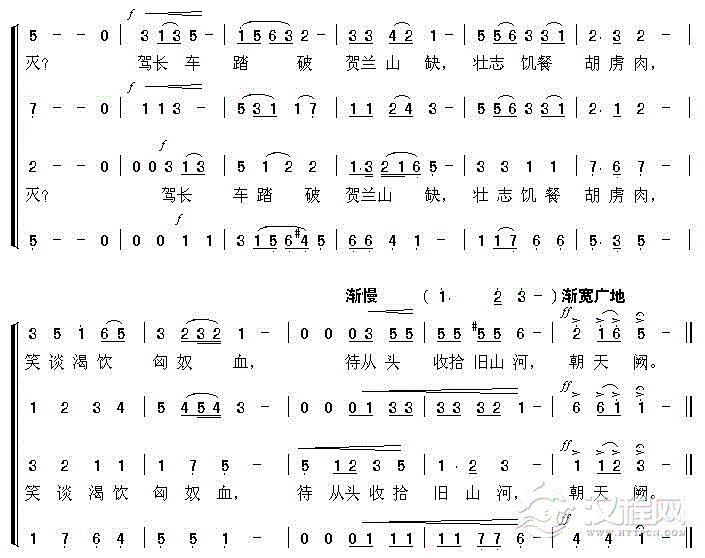 f
5 - - 0 | 3 1 3 5 - | 1 5 6 3 2 - | 3 3 4 2 1 - | 5 5 6 3 3 1 | 2· 3 2 - |
灭? 驾长 车 踏 破 贺兰 山 缺, 壮志 饥餐 胡 虏 肉,
f
7 - - 0 | 1 1 3 - | 5 3 1 1 7 | 1 1 2 4 3 - | 5 5 6 3 3 1 | 2· 1 2 - |
f
2 - - 0 | 0 0 3 1 3 | 5 1 2 2 | 1·3 2 1 6 5 - | 3 3 1 1 | 7· 6 7 - |
灭? 驾长 车 踏 破 贺兰山 缺, 壮 志 饥 餐 胡 虏 肉,
f
5 - - 0 | 0 0 1 1 | 3 1 5 6 #4 5 | 6 6 4 1 - | 1 1 7 6 6 | 5· 3 5 - |
渐慢 (1· 2 3 -) 渐宽广地
ff
3 5 1 6 5 | 3 2 3 2 1 - | 0 0 0 3 5 5 | 5 5 #5 5 6 - | 2 1 6 5 - ‖
笑 谈 渴 饮 匈 奴 血, 待从 头 收拾 旧山 河, 朝 天 阙。
ff
1 2 3 4 | 5 4 5 4 3 - | 0 0 0 1 3 3 | 3 3 3 2 1 - | 6 6 1 1 - ‖
ff
3 2 1 1 | 1 7 5 - | 5 1 2 3 5 | 1· 2 3 - | 1 1 2 3 - ‖
笑 谈 渴 饮 匈 奴 血, 待 从头 收 拾 旧 山 河, 朝 天 阙。
ff
1 7 6 4 | 5 5 1 - | 0 0 0 1 1 1 | 1 1 7 7 6 - | 4 4
汉程网
WWW.HTTPCN.COM